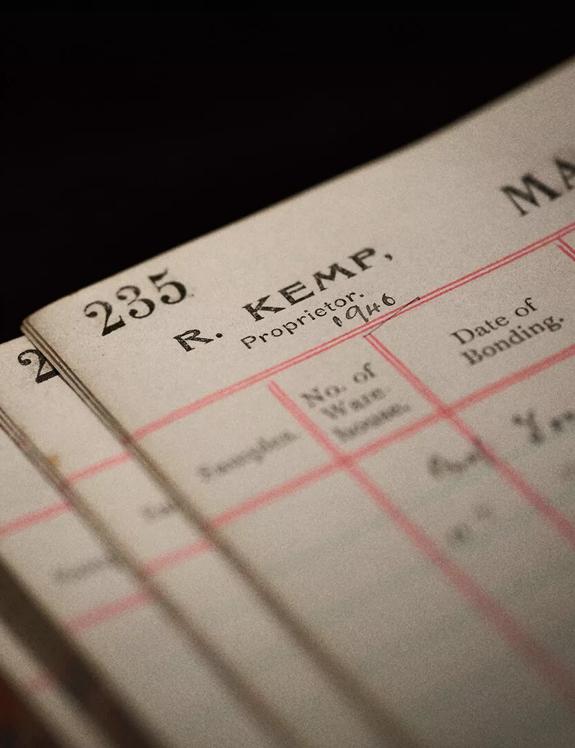 235
R. KEMP,
Proprietor.
1946
MA
Samples.
No. of
Ware-
house.
Date of
Bonding.
2